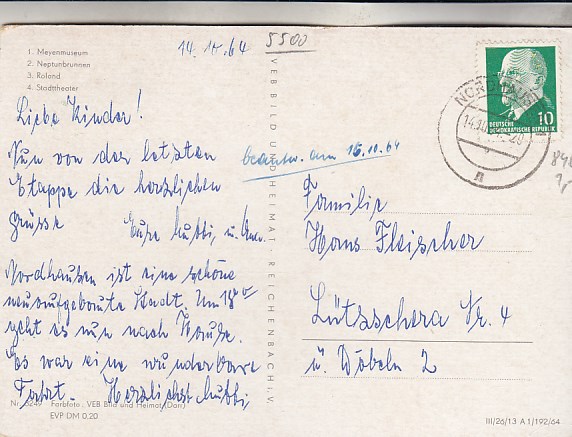 1. Meyenmuseum
2. Neptunbrunnen
3. Roland
4. Stadttheater
14.10.64
5500
Liebe Kinder!
Nun von der letzten
Etappe die herzlichen
Grüsse
Eure Mutti, u.
Nordhausen ist eine schöne
neuaufgebaute Stadt. Um 18⁰⁰
geht es nun nach Hause.
Es war eine wunderbare
Fahrt. Herzlichst Mutti,
Nr. 6249 Farbfoto: VEB Bild und Heimat (Darr)
EVP DM 0.20
VEB BILD UND HEIMAT REICHENBACH i. V.
beantw. am 16.10.64
NORDHAUSEN
14.10.
DEUTSCHE
DEMOKRATISCHE REPUBLIK
10
Familie
Hans Fleischer
Lützschera Nr. 4
ü. Döbeln 2
III/26/13 A 1/192/64